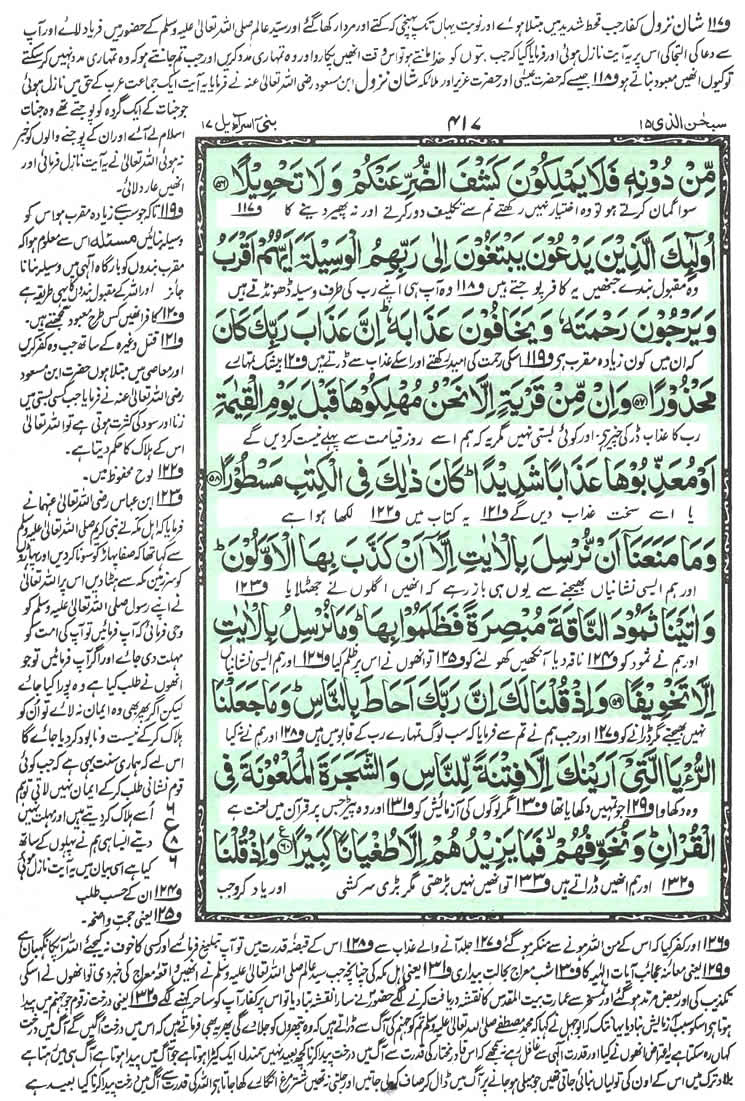 و۱۱۷ شان نزول کفار جب قحط شدید میں مبتلا ہوئے اور نوبت یہاں تک پہنچی کہ کتے اور مردار کھا گئے اور سید عالم صلی اللہ تعالیٰ علیہ وسلم کے حضور میں فریاد لائے اور آپ
سے دعا کی التجا کی اس پر یہ آیت نازل ہوئی اور فرمایا گیا کہ جب بتوں کو خدا مانتے ہو تو اس وقت انھیں پکارو اور وہ تمہاری مدد کریں اور جب تم جانتے ہو کہ وہ تمہاری مدد نہیں کر سکتے
تو کیوں انھیں معبود بناتے ہو و۱۱۸ جیسے کہ حضرت عیسیٰ اور حضرت عزیر اور ملائکہ شان نزول ابن مسعود رضی اللہ تعالیٰ عنہ نے فرمایا یہ آیت ایک جماعت عرب کے حق میں نازل ہوئی
سبحٰن الذی ۱۵
۴۱۷
بنی اسرآءیل ۱۷
مِّنْ دُوْنِهٖ فَلَا يَمْلِكُوْنَ كَشْفَ الضُّرِّ عَنْكُمْ وَ لَا تَحْوِيْلًا ﴿۵۶﴾
سوا گمان کرتے ہو تو وہ اختیار نہیں رکھتے تم سے تکلیف دور کرنے اور نہ پھیر دینے کا و۱۱۷
اُولٰٓئِكَ الَّذِيْنَ يَدْعُوْنَ يَبْتَغُوْنَ اِلٰى رَبِّهِمُ الْوَسِيْلَةَ اَيُّهُمْ اَقْرَبُ
وہ مقبول بندے جنھیں یہ کافر پوجتے ہیں و۱۱۸ وہ آپ ہی اپنے رب کی طرف وسیلہ ڈھونڈتے ہیں
وَ يَرْجُوْنَ رَحْمَتَهٗ وَ يَخَافُوْنَ عَذَابَهٗ ؕ اِنَّ عَذَابَ رَبِّكَ كَانَ
کہ ان میں کون زیادہ مقرب ہے و۱۱۹ اسکی رحمت کی امید رکھتے اور اسکے عذاب سے ڈرتے ہیں و۱۲۰ بیشک تمہارے
مَحْذُوْرًا ﴿۵۷﴾ وَ اِنْ مِّنْ قَرْيَةٍ اِلَّا نَحْنُ مُهْلِكُوْهَا قَبْلَ يَوْمِ الْقِيٰمَةِ
رب کا عذاب ڈر کی چیز ہے اور کوئی بستی نہیں مگر یہ کہ ہم اسے روز قیامت سے پہلے نیست کردیں گے
اَوْ مُعَذِّبُوْهَا عَذَابًا شَدِيْدًا ؕ كَانَ ذٰلِكَ فِى الْكِتٰبِ مَسْطُوْرًا ﴿۵۸﴾
یا اسے سخت عذاب دیں گے و۱۲۱ یہ کتاب میں و۱۲۲ لکھا ہوا ہے
وَ مَا مَنَعَنَاۤ اَنْ نُّرْسِلَ بِالْاٰيٰتِ اِلَّاۤ اَنْ كَذَّبَ بِهَا الْاَوَّلُوْنَ ؕ
اور ہم ایسی نشانیاں بھیجنے سے یوں ہی باز رہے کہ انھیں اگلوں نے جھٹلایا و۱۲۳
وَ اٰتَيْنَا ثَمُوْدَ النَّاقَةَ مُبْصِرَةً فَظَلَمُوْا بِهَا ؕ وَ مَا نُرْسِلُ بِالْاٰيٰتِ
اور ہم نے ثمود کو و۱۲۴ ناقہ دیا آنکھیں کھولنے کو و۱۲۵ تو انھوں نے اس پر ظلم کیا و۱۲۶ اور ہم ایسی نشانیاں
اِلَّا تَخْوِيْفًا ﴿۵۹﴾ وَ اِذْ قُلْنَا لَكَ اِنَّ رَبَّكَ اَحَاطَ بِالنَّاسِ ؕ وَ مَا جَعَلْنَا
نہیں بھیجتے مگر ڈرانے کو و۱۲۷ اور جب ہم نے تم سے فرمایا کہ سب لوگ تمہارے رب کے قابو میں ہیں و۱۲۸ اور ہم نے نہ کیا
الرُّءْيَا الَّتِىْۤ اَرَيْنٰكَ اِلَّا فِتْنَةً لِّلنَّاسِ وَ الشَّجَرَةَ الْمَلْعُوْنَةَ فِى
وہ دکھاوا و۱۲۹ جو تمہیں دکھایا تھا و۱۳۰ مگر لوگوں کی آزمائش کو و۱۳۱ اور وہ پیڑ جس پر قرآن میں لعنت ہے
الْقُرْاٰنِ ؕ وَ نُخَوِّفُهُمْ ۙ فَمَا يَزِيْدُهُمْ اِلَّا طُغْيَانًا كَبِيْرًا ﴿۶۰﴾ وَ اِذْ قُلْنَا
و۱۳۲ اور ہم انھیں ڈراتے ہیں و۱۳۳ تو انھیں نہیں بڑھتی مگر بڑی سرکشی اور یاد کرو جب
جو جنات کے ایک گروہ کو پوجتے تھے وہ جنات
اسلام لے آئے اور ان کے پوجنے والوں کو خبر
نہ ہوئی اللہ تعالیٰ نے یہ آیت نازل فرمائی اور
انھیں عار دلائی۔
و۱۱۹ تاکہ جو سب سے زیادہ مقرب ہو اس کو
وسیلہ بنائیں مسئلہ اس سے معلوم ہوا کہ
مقرب بندوں کو بارگاہ الٰہی میں وسیلہ بنانا
جائز اور اللہ کے مقبول بندوں کا یہی طریقہ ہے
و۱۲۰ کافر انھیں کس طرح معبود سمجھتے ہیں۔
و۱۲۱ قتل وغیرہ کے ساتھ جب وہ کفر کریں
اور معاصی میں مبتلا ہوں حضرت ابن مسعود
رضی اللہ تعالیٰ عنہ نے فرمایا جب کسی بستی میں
زنا اور سود کی کثرت ہوتی ہے تو اللہ تعالیٰ
اس کے ہلاک کا حکم دیتا ہے۔
و۱۲۲ لوح محفوظ میں۔
و۱۲۳ ابن عباس رضی اللہ تعالیٰ عنہما نے
فرمایا کہ اہل مکہ نے نبی کریم صلی اللہ تعالیٰ علیہ وسلم
سے کہا تھا کہ صفا پہاڑ کو سونا کردیں اور پہاڑوں
کو سرزمین مکہ سے ہٹا دیں اس پر اللہ تعالیٰ
نے اپنے رسول صلی اللہ تعالیٰ علیہ وسلم کو
وحی فرمائی کہ آپ فرمائیں تو آپ کی امت کو
مہلت دی جائے اور اگر آپ فرمائیں تو جو
انھوں نے طلب کیا ہے وہ پورا کیا جائے
لیکن اگر پھر بھی وہ ایمان نہ لائے تو ان کو
ہلاک کرکے نیست و نابود کردیا جائے گا
اس لئے کہ ہماری سنت یہی ہے کہ جب کوئی
قوم نشانی طلب کرکے ایمان نہیں لاتی تو ہم
اسے ہلاک کردیتے ہیں اور مہلت نہیں
دیتے ایسا ہی ہم نے پہلوں کے ساتھ
کیا ہے اسی بیان میں یہ آیت نازل ہوئی
و۱۲۴ ان کے حسب طلب
و۱۲۵ یعنی حجت واضحہ۔
۶
ع
۸
۶
و۱۲۶ اور کفر کیا کہ اس کے من اللہ ہونے سے منکر ہوگئے و۱۲۷ جلد آنے والے عذاب سے و۱۲۸ اس کے قبضۂ قدرت میں تو آپ تبلیغ فرمائیے اور کسی کا خوف نہ کیجئے اللہ آپ کا نگہبان ہے
و۱۲۹ یعنی معائنہ عجائب آیات الٰہیہ کا و۱۳۰ شب معراج بحالت بیداری و۱۳۱ یعنی اہل مکہ کی چنانچہ جب سید عالم صلی اللہ تعالیٰ علیہ وسلم نے انھیں واقعہ معراج کی خبر دی تو انھوں نے اسکی
تکذیب کی اور بعض مرتد ہوگئے اور تمسخر سے عمارت بیت المقدس کا نقشہ دریافت کرنے لگے حضور نے سارا نقشہ بتا دیا تو اس پر کفار آپ کو ساحر کہنے لگے و۱۳۲ یعنی درخت زقوم جو جہنم میں پیدا
ہوتا ہے اس کو سبب آزمائش بنا دیا یہاں تک کہ ابوجہل نے کہا کہ محمد مصطفےٰ صلی اللہ تعالیٰ علیہ وسلم تم کو جہنم کی آگ سے ڈراتے ہیں کہ وہ پتھروں کو جلادے گی پھر یہ بھی فرماتے ہیں کہ اس میں درخت اگیں گے آگ میں درخت
کہاں رہ سکتا ہے یہ اعتراض انھوں نے کیا اور قدرت الٰہی سے غافل رہے یہ نہ سمجھے کہ اس قادر مختار کی قدرت سے آگ میں درخت پیدا کرنا کچھ بعید نہیں سمندل ایک کیڑا ہوتا ہے جو آگ میں پیدا ہوتا ہے آگ ہی میں رہتا ہے
بلاد ترک میں اس کے اون کی تولیاں بنائی جاتی تھیں جو میلی ہو جانے پر آگ میں ڈال کر صاف کرلی جاتیں اور جلتی نہ تھیں شتر مرغ انگارے کھا جاتا ہے اللہ کی قدرت سے آگ میں درخت پیدا کرنا کیا بعید ہے